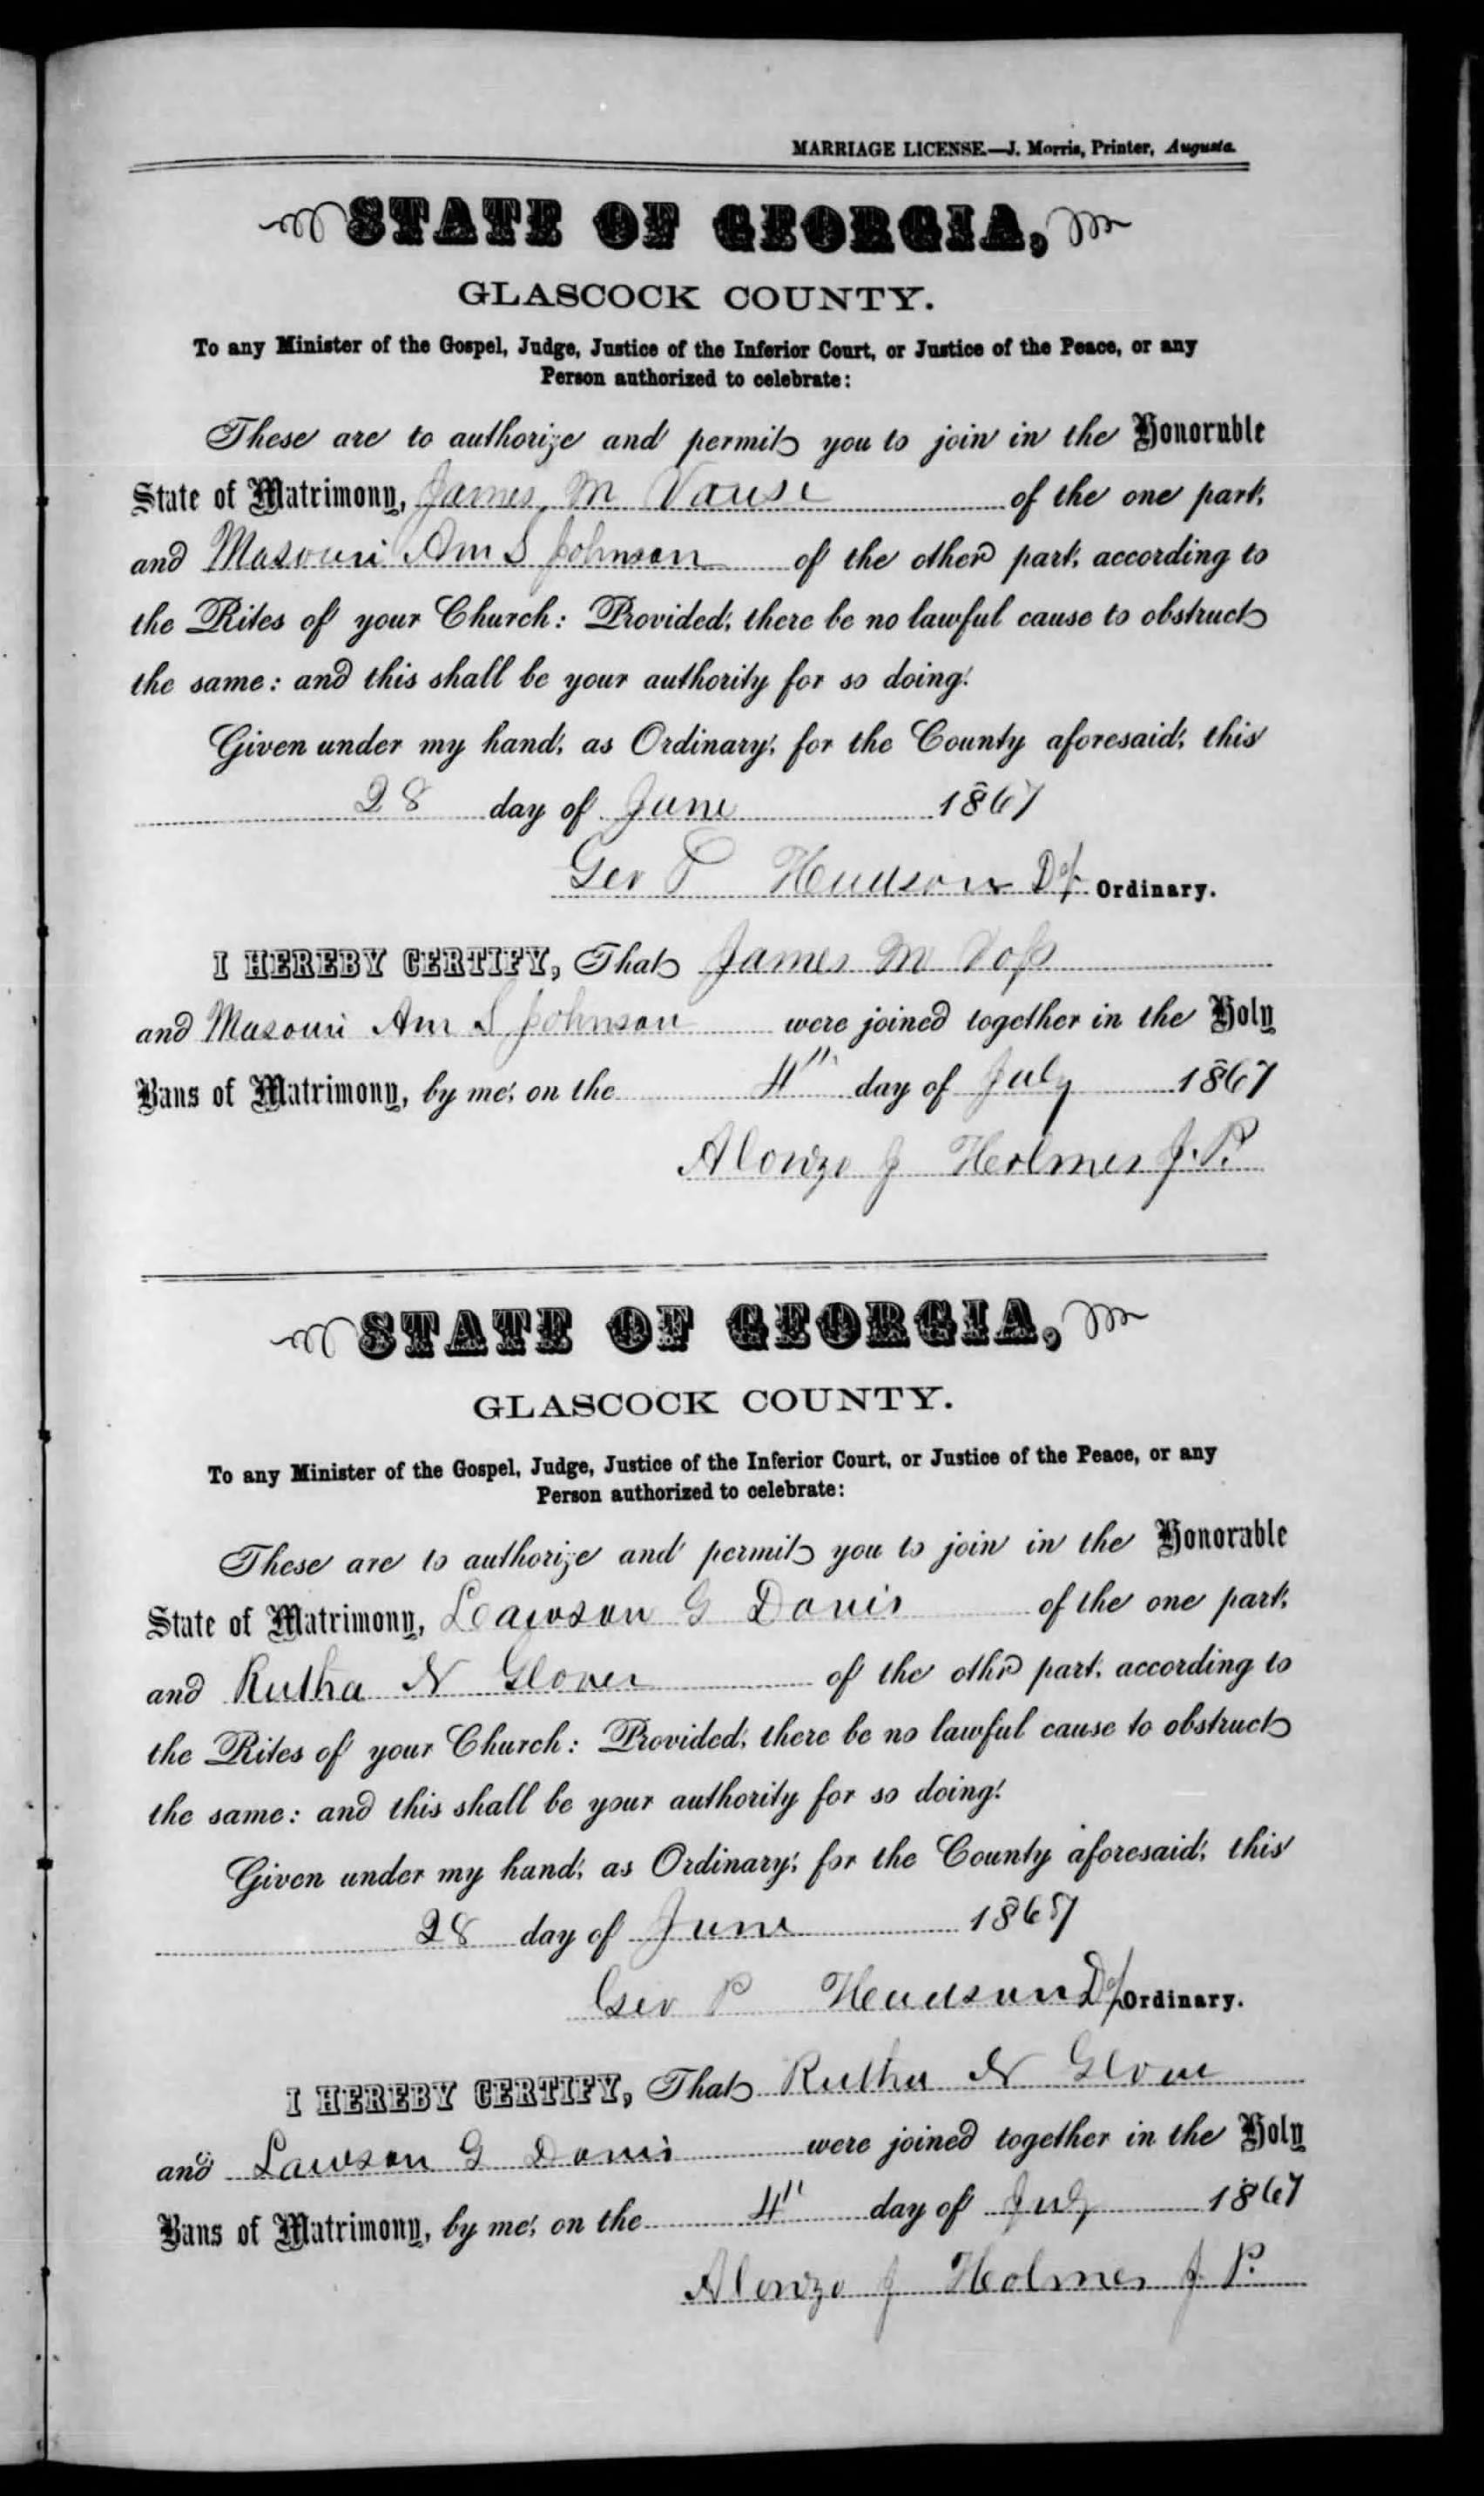 MARRIAGE LICENSE.—J. Morris, Printer, Augusta.
STATE OF GEORGIA,
GLASCOCK COUNTY.
To any Minister of the Gospel, Judge, Justice of the Inferior Court, or Justice of the Peace, or any
Person authorized to celebrate:
These are to authorize and permit you to join in the Honorable
State of Matrimony, James M Vause of the one part,
and Masouri Ann S Johnson of the other part, according to
the Rites of your Church: Provided, there be no lawful cause to obstruct
the same: and this shall be your authority for so doing.
Given under my hand, as Ordinary, for the County aforesaid, this
28 day of June 1867
Geo P Hudson Dep Ordinary.
I HEREBY CERTIFY, That James M Voss
and Masouri Ann S Johnson were joined together in the Holy
Bans of Matrimony, by me, on the 4th day of July 1867
Alonzo J Holmes J.P.
STATE OF GEORGIA,
GLASCOCK COUNTY.
To any Minister of the Gospel, Judge, Justice of the Inferior Court, or Justice of the Peace, or any
Person authorized to celebrate:
These are to authorize and permit you to join in the Honorable
State of Matrimony, Lawson G Davis of the one part,
and Rutha N Glover of the othr part, according to
the Rites of your Church: Provided, there be no lawful cause to obstruct
the same: and this shall be your authority for so doing.
Given under my hand, as Ordinary, for the County aforesaid, this
28 day of June 1867
Geo P Hudson Dep Ordinary.
I HEREBY CERTIFY, That Rutha N Glover
and Lawson G Davis were joined together in the Holy
Bans of Matrimony, by me, on the 4" day of July 1867
Alonzo J Holmes J P.